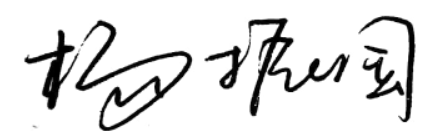 杨振国